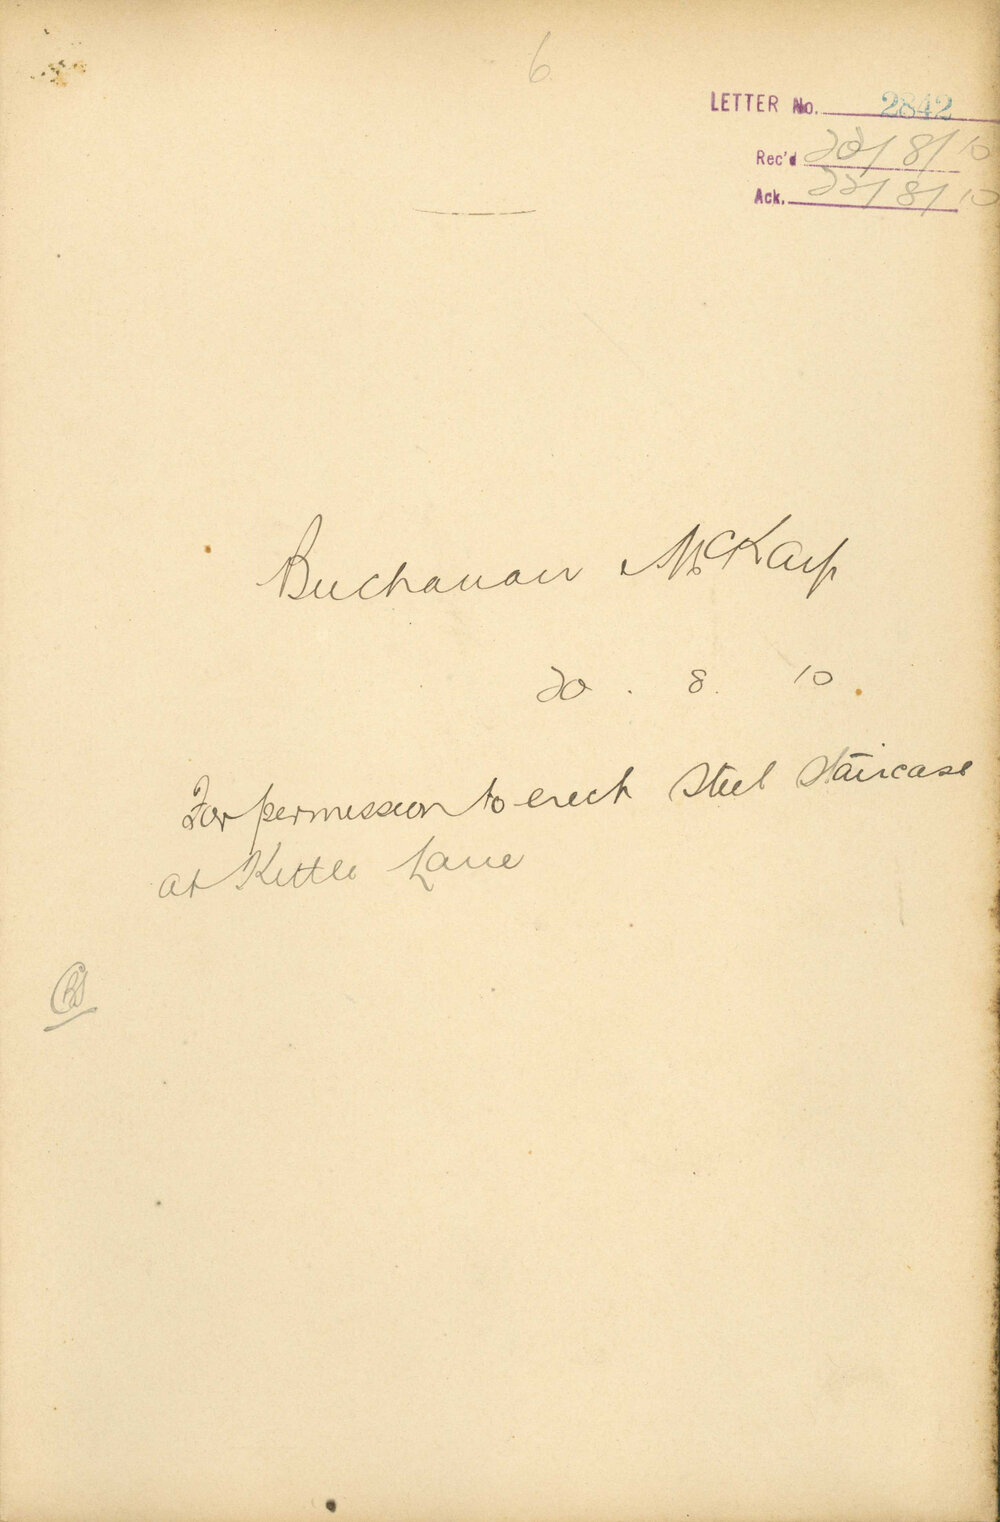 6
LETTER No. 2842
Rec'd 20/8/10
Ack. 22/8/10
Buchanan McKay
20. 8. 10.
For permission to erect Steel Staircase
at Kettle Lane